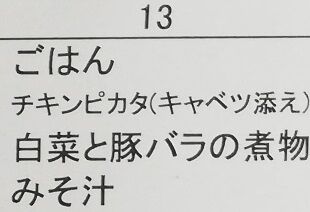 13
ごはん
チキンピカタ(キャベツ添え)
白菜と豚バラの煮物
みそ汁